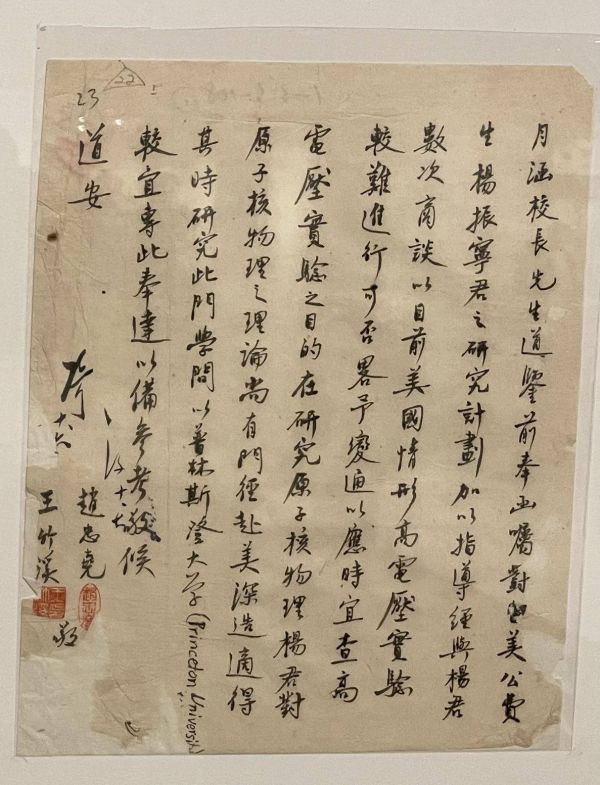 22
23
月涵校長先生道鑒前奉函囑對留美公費
生楊振寧君之研究計劃加以指導經與楊君
數次商談以目前美國情形高電壓實驗
較難進行可否畧予變通以應時宜查高
電壓實驗之目的在研究原子核物理楊君對
原子核物理之理論尚有門徑赴美深造適得
其時研究此門學問以普林斯登大学(Princeton University)
較宜專此奉達以備參考敬候
道安
趙忠堯
王竹溪
敬